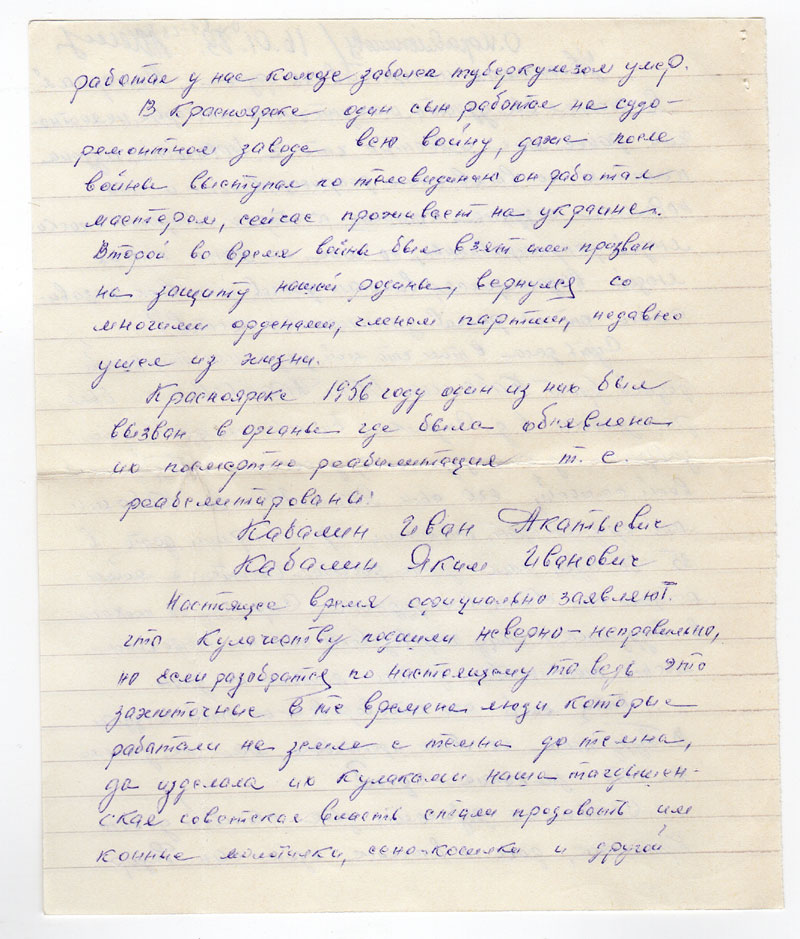 работае у нас колхозе заболел туберкулезом умер.
В Красноярске один сын работае на судо-
ремонтном заводе всю войну, даже после
войны выступал по телевидинаю он работал
мастером, сейчас проживает на украине.
Второй во время войны был взят или призван
на защиту нашей родины, вернулся со
многими орденами, членом партии, недавно
ушел из жизни.
Красноярске 1956 году один из них был
вызван в органы где была объявлена
их посмертно реабилитация т. е.
реабелитированы:
Кабалин Иван Акатьевич
Кабалин Яким Иванович
Настоящее время официально заявляют.
что кулачеству подошли неверно - неправильно,
но если разобратся по настоящему то ведь это
зажиточные в те времена люди которые
работали на земле с темна до темна,
да изделала их кулаками наша тагдышен-
ская советская власть стали продовать им
конные молотилки, сено-косилки и другой